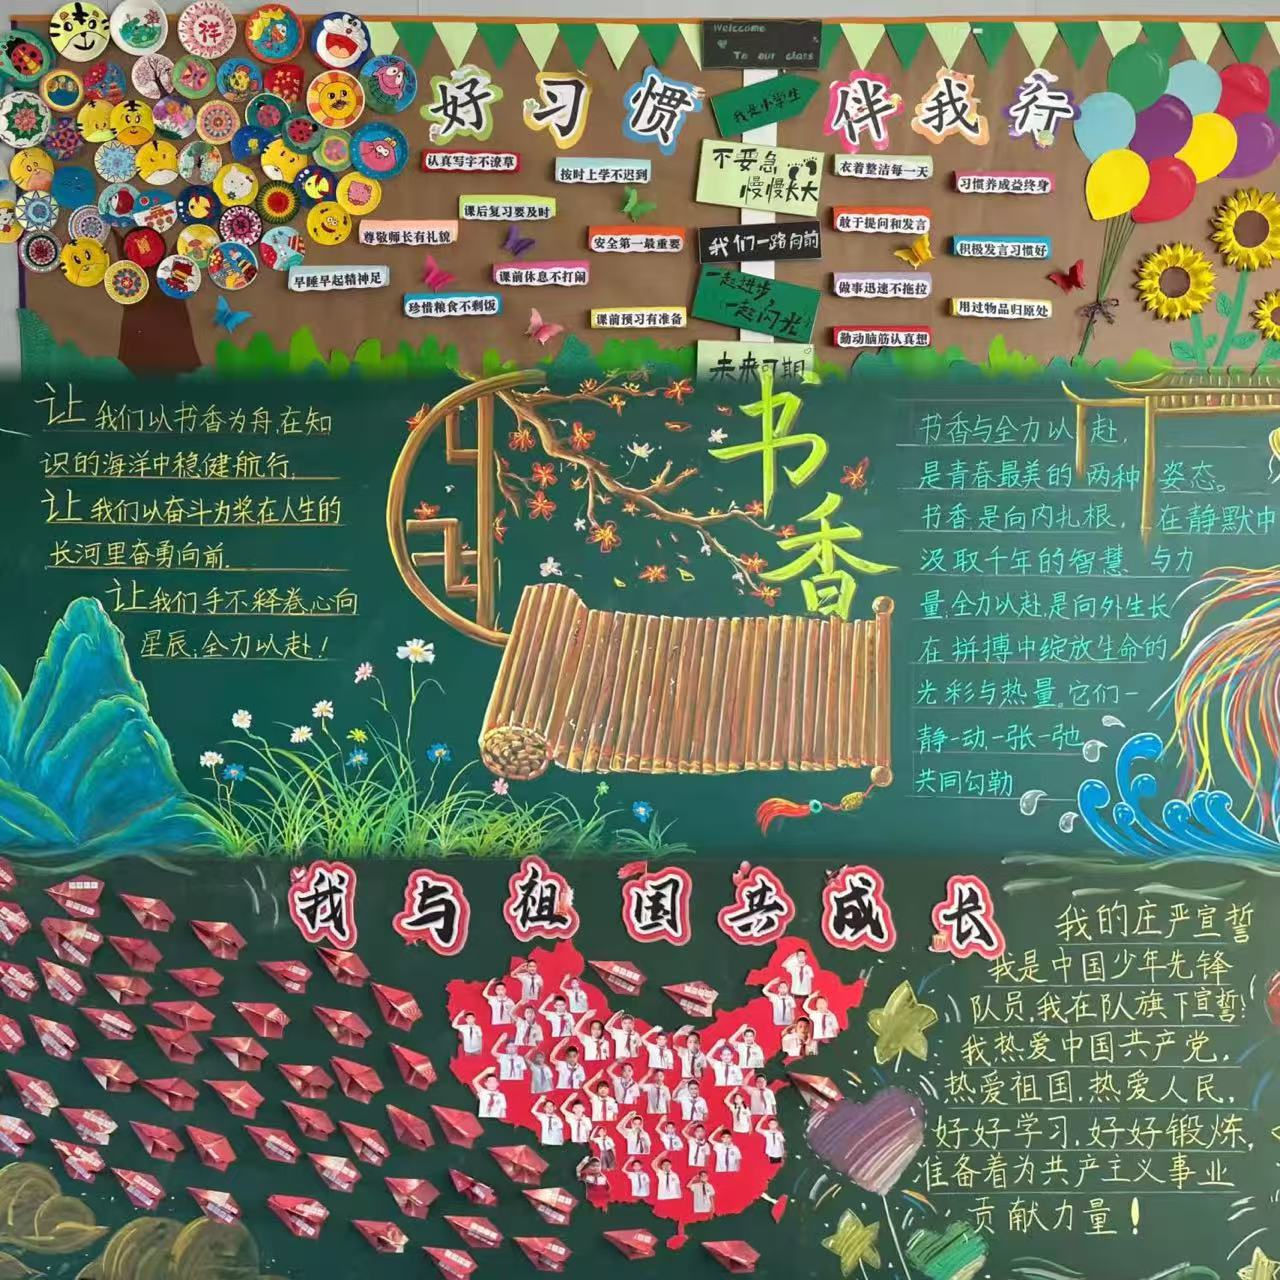 祥
Welccome
To our class
好习惯
伴我行
我是小学生
不要急
慢慢长大
我们一路向前
一起进步,
一起闪光
未来可期
认真写字不潦草
按时上学不迟到
课后复习要及时
尊敬师长有礼貌
安全第一最重要
早睡早起精神足
课前休息不打闹
珍惜粮食不剩饭
课前预习有准备
衣着整洁每一天
习惯养成益终身
敢于提问和发言
积极发言习惯好
做事迅速不拖拉
用过物品归原处
勤动脑筋认真想
让我们以书香为舟,在知
识的海洋中稳健航行,
让我们以奋斗为桨在人生的
长河里奋勇向前.
让我们手不释卷,心向
星辰,全力以赴!
书香
书香与全力以赴,
是青春最美的两种姿态。
书香,是向内扎根,在静默中
汲取千年的智慧与力
量,全力以赴,是向外生长
在拼搏中绽放生命的
光彩与热量。它们一
静一动,一张一弛
共同勾勒
我与祖国共成长
我的庄严宣誓
我是中国少年先锋
队员,我在队旗下宣誓!
我热爱中国共产党,
热爱祖国,热爱人民,
好好学习,好好锻炼,
准备着为共产主义事业
贡献力量!